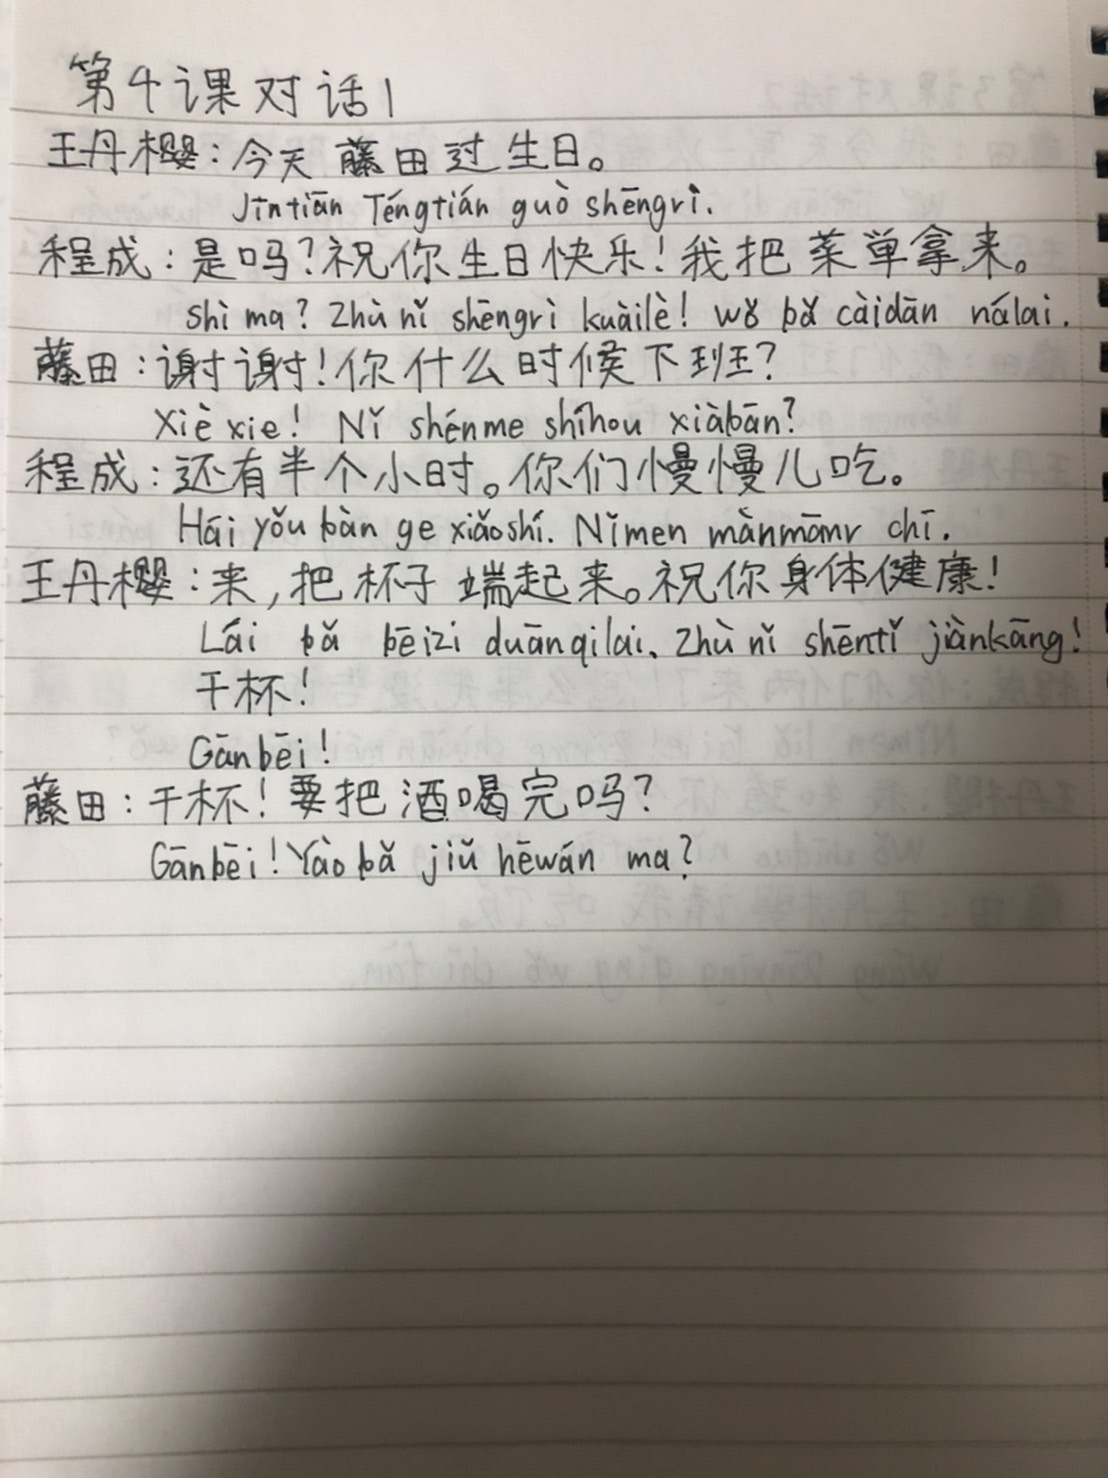 第4课对话1
王丹樱：今天藤田过生日。
Jīntiān Téngtián guò shēngrì.
程成：是吗？祝你生日快乐！我把菜单拿来。
Shì ma? Zhù nǐ shēngrì kuàilè! Wǒ bǎ càidān nálai.
藤田：谢谢！你什么时候下班？
Xièxie! Nǐ shénme shíhou xiàbān?
程成：还有半个小时。你们慢慢儿吃。
Hái yǒu bàn ge xiǎoshí. Nǐmen mànmānr chī.
王丹樱：来，把杯子端起来。祝你身体健康！
Lái bǎ bēizi duānqilai. Zhù nǐ shēntǐ jiànkāng!
干杯！
Gānbēi!
藤田：干杯！要把酒喝完吗？
Gānbēi! Yào bǎ jiǔ hēwán ma?